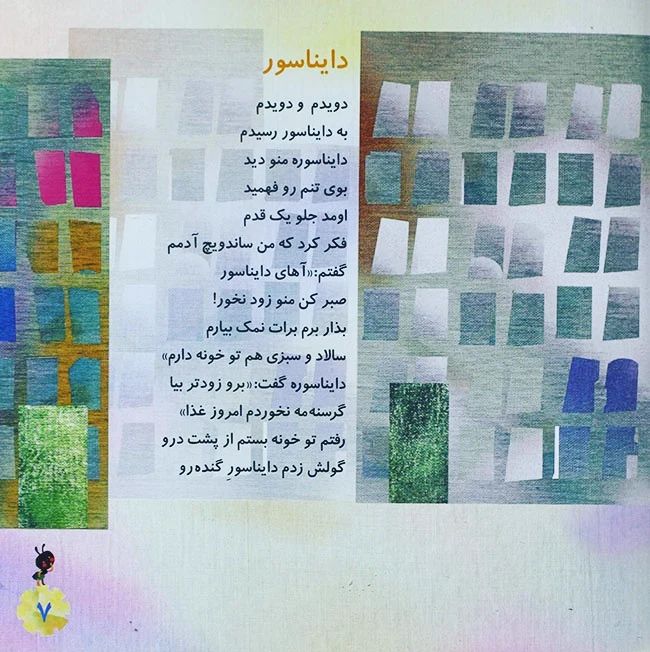 دایناسور
دویدم و دویدم
به دایناسور رسیدم
دایناسوره منو دید
بوی تنم رو فهمید
اومد جلو یک قدم
فکر کرد که من ساندویچ آدمم
گفتم:«آهای دایناسور
صبر کن منو زود نخور!
بذار برم برات نمک بیارم
سالاد و سبزی هم تو خونه دارم»
دایناسوره گفت:«برو زودتر بیا
گرسنه‌مه نخوردم امروز غذا»
رفتم تو خونه بستم از پشت درو
گولش زدم دایناسورِ گنده‌رو
۷